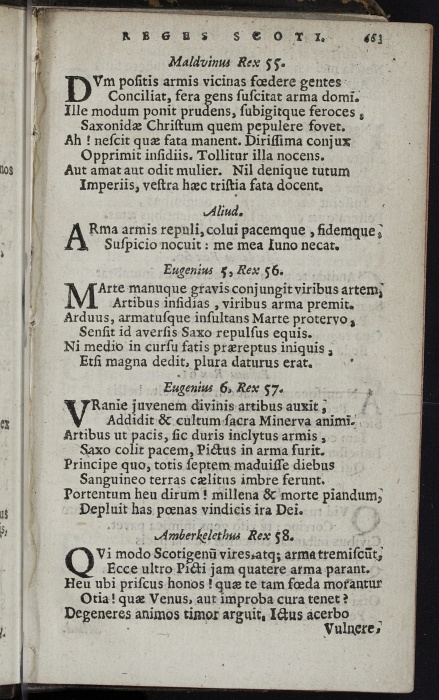 REGES SCOTI. 663
Maldvinus Rex 55.
DVm positis armis vicinas fœdere gentes
Conciliat, fera gens suscitat arma domi.
Ille modum ponit prudens, subigitque feroces,
Saxonidæ Christum quem pepulere fovet.
Ah ! nescit quæ fata manent. Dirissima conjux
Opprimit insidiis. Tollitur illa nocens.
Aut amat aut odit mulier. Nil denique tutum
Imperiis, vestra hæc tristia fata docent.
Aliud.
ARma armis repuli, colui pacemque, fidemque;
Suspicio nocuit : me mea Iuno necat.
Eugenius 5, Rex 56.
MArte manuque gravis conjungit viribus artem;
Artibus insidias, viribus arma premit.
Arduus, armatusque insultans Marte protervo,
Sensit id aversis Saxo repulsus equis.
Ni medio in cursu fatis præreptus iniquis,
Etsi magna dedit, plura daturus erat.
Eugenius 6. Rex 57.
VRanie juvenem divinis artibus auxit,
Addidit & cultum sacra Minerva animi.
Artibus ut pacis, sic duris inclytus armis,
Saxo colit pacem, Pictus in arma furit.
Principe quo, totis septem maduisse diebus
Sanguineo terras cælitus imbre ferunt.
Portentum heu dirum ! millena & morte piandum,
Depluit has pœnas vindicis ira Dei.
Amberkelethus Rex 58.
QVi modo Scotigenū vires, atq; arma tremiscūt,
Ecce ultro Picti jam quatere arma parant.
Heu ubi priscus honos ! quæ te tam fœda morantur
Otia ! quæ Venus, aut improba cura tenet ?
Degeneres animos timor arguit. Ictus acerbo
Vulnere,